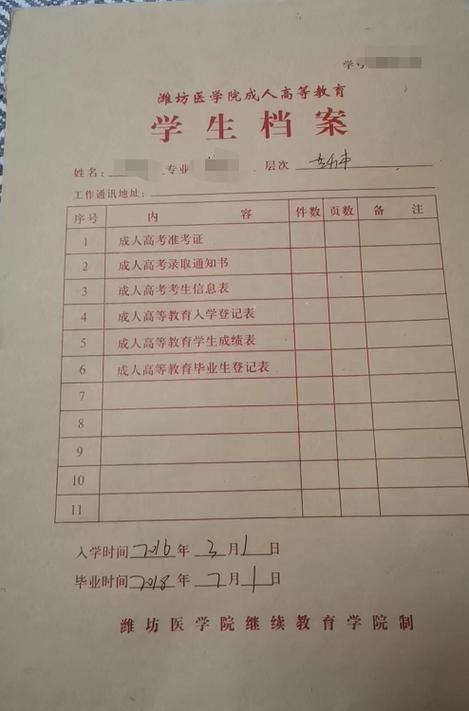 学号
潍坊医学院成人高等教育
学生档案
姓名: 专业 层次 专升本
工作通讯地址:
序号 内 容 件数 页数 备 注
1 成人高考准考证
2 成人高考录取通知书
3 成人高考考生信息表
4 成人高等教育入学登记表
5 成人高等教育学生成绩表
6 成人高等教育毕业生登记表
7
8
9
10
11
入学时间 2016 年 3 月 1 日
毕业时间 2018 年 7 月 1 日
潍坊医学院继续教育学院制